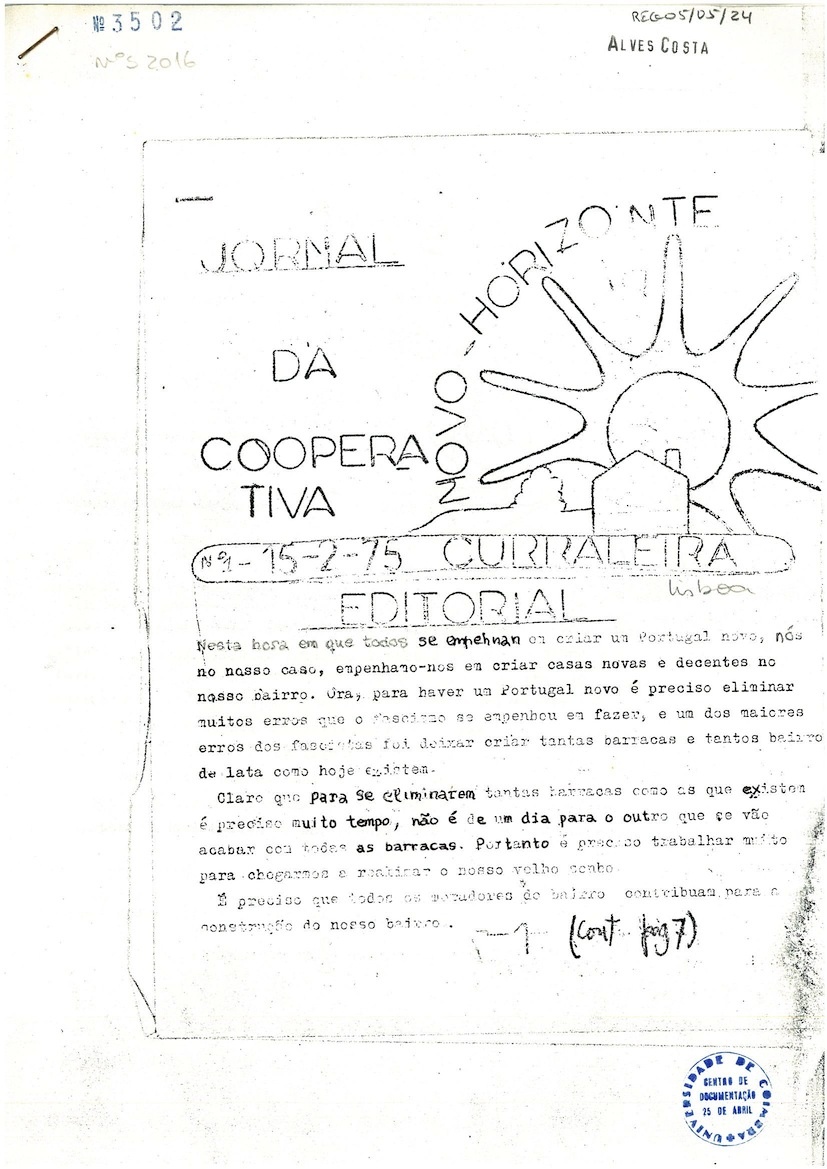 Nº 3502
Nº S 2016
REG 05/05/24
ALVES COSTA
JORNAL
DA
COOPERA
TIVA
NOVO-HORIZONTE
Nº1 - 15-2-75 CURRALEIRA
Lisboa
EDITORIAL
Nesta hora em que todos se empehnan em criar um Portugal novo, nós
no nosso caso, empenhamo-nos em criar casas novas e decentes no
nosso bairro. Ora, para haver um Portugal novo é preciso eliminar
muitos erros que o fascismo se empenhou em fazer, e um dos maiores
erros dos fascistas foi deixar criar tantas barracas e tantos bairro
de lata como hoje existem.
Claro que para se eliminarem tantas barracas como as que existem
é preciso muito tempo, não é de um dia para o outro que se vão
acabar com todas as barracas. Portanto é preciso trabalhar muito
para chegarmos a realizar o nosso velho sonho
É preciso que todos os moradores do bairro contribuam para a
construção do nosso bairro.
-1- (cont. pág 7)
UNIVERSIDADE DE COIMBRA
CENTRO DE
DOCUMENTAÇÃO
25 DE ABRIL